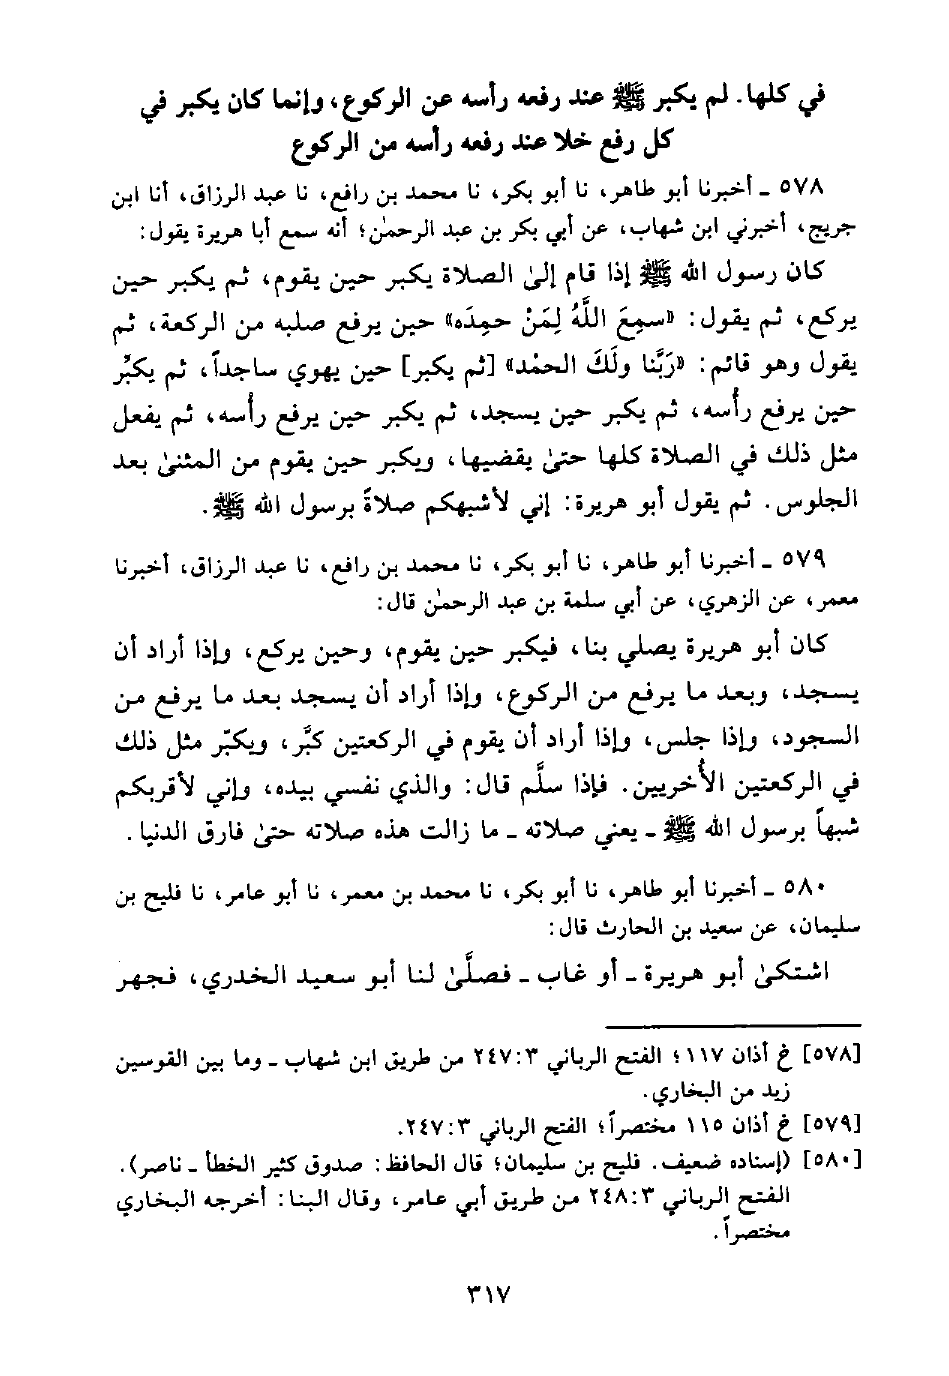 في كلها. لم يكبر ﷺ عند رفعه رأسه عن الركوع، وإنما كان يكبر في
كل رفع خلا عند رفعه رأسه من الركوع
٥٧٨ ـ أخبرنا أبو طاهر، نا أبو بكر، نا محمد بن رافع، نا عبد الرزاق، أنا ابن
جريج، أخبرني ابن شهاب، عن أبي بكر بن عبد الرحمٰن؛ أنه سمع أبا هريرة يقول:
كان رسول الله ﷺ إذا قام إلىٰ الصلاة يكبر حين يقوم، ثم يكبر حين
يركع، ثم يقول: «سمِعَ اللَّهُ لِمَنْ حمِدَه» حين يرفع صلبه من الركعة، ثم
يقول وهو قائم: «رَبَّنا ولَكَ الحمْد» [ثم يكبر] حين يهوي ساجداً، ثم يكبِّر
حين يرفع رأُسه، ثم يكبر حين يسجد، ثم يكبر حين يرفع رأسه، ثم يفعل
مثل ذلك في الصلاة كلها حتىٰ يقضيها، ويكبر حين يقوم من المثنىٰ بعد
الجلوس. ثم يقول أبو هريرة: إني لأشبهكم صلاةً برسول الله ﷺ.
٥٧٩ ـ أخبرنا أبو طاهر، نا أبو بكر، نا محمد بن رافع، نا عبد الرزاق، أخبرنا
معمر، عن الزهري، عن أبي سلمة بن عبد الرحمٰن قال:
كان أبو هريرة يصلي بنا، فيكبر حين يقوم، وحين يركع، وإذا أراد أن
يسجد، وبعد ما يرفع من الركوع، وإذا أراد أن يسجد بعد ما يرفع من
السجود، وإذا جلس، وإذا أراد أن يقوم في الركعتين كبَّر، ويكبّر مثل ذلك
في الركعتين الأُخريين. فإذا سلَّم قال: والذي نفسي بيده، وإني لأقربكم
شبهاً برسول الله ﷺ ـ يعني صلاته ـ ما زالت هذه صلاته حتىٰ فارق الدنيا.
٥٨٠ ـ أخبرنا أبو طاهر، نا أبو بكر، نا محمد بن معمر، نا أبو عامر، نا فليح بن
سليمان، عن سعيد بن الحارث قال:
اشتكىٰ أبو هريرة ـ أو غاب ـ فصلَّىٰ لنا أبو سعيد الخدري، فجهر
[٥٧٨] خ أذان ١١٧؛ الفتح الرباني ٣:٢٤٧ من طريق ابن شهاب ـ وما بين القوسين
زيد من البخاري.
[٥٧٩] خ أذان ١١٥ مختصراً؛ الفتح الرباني ٣:٢٤٧.
[٥٨٠] (إسناده ضعيف. فليح بن سليمان؛ قال الحافظ: صدوق كثير الخطأ ـ ناصر).
الفتح الرباني ٣:٢٤٨ من طريق أبي عامر، وقال البنا: أخرجه البخاري
مختصراً.
٣١٧